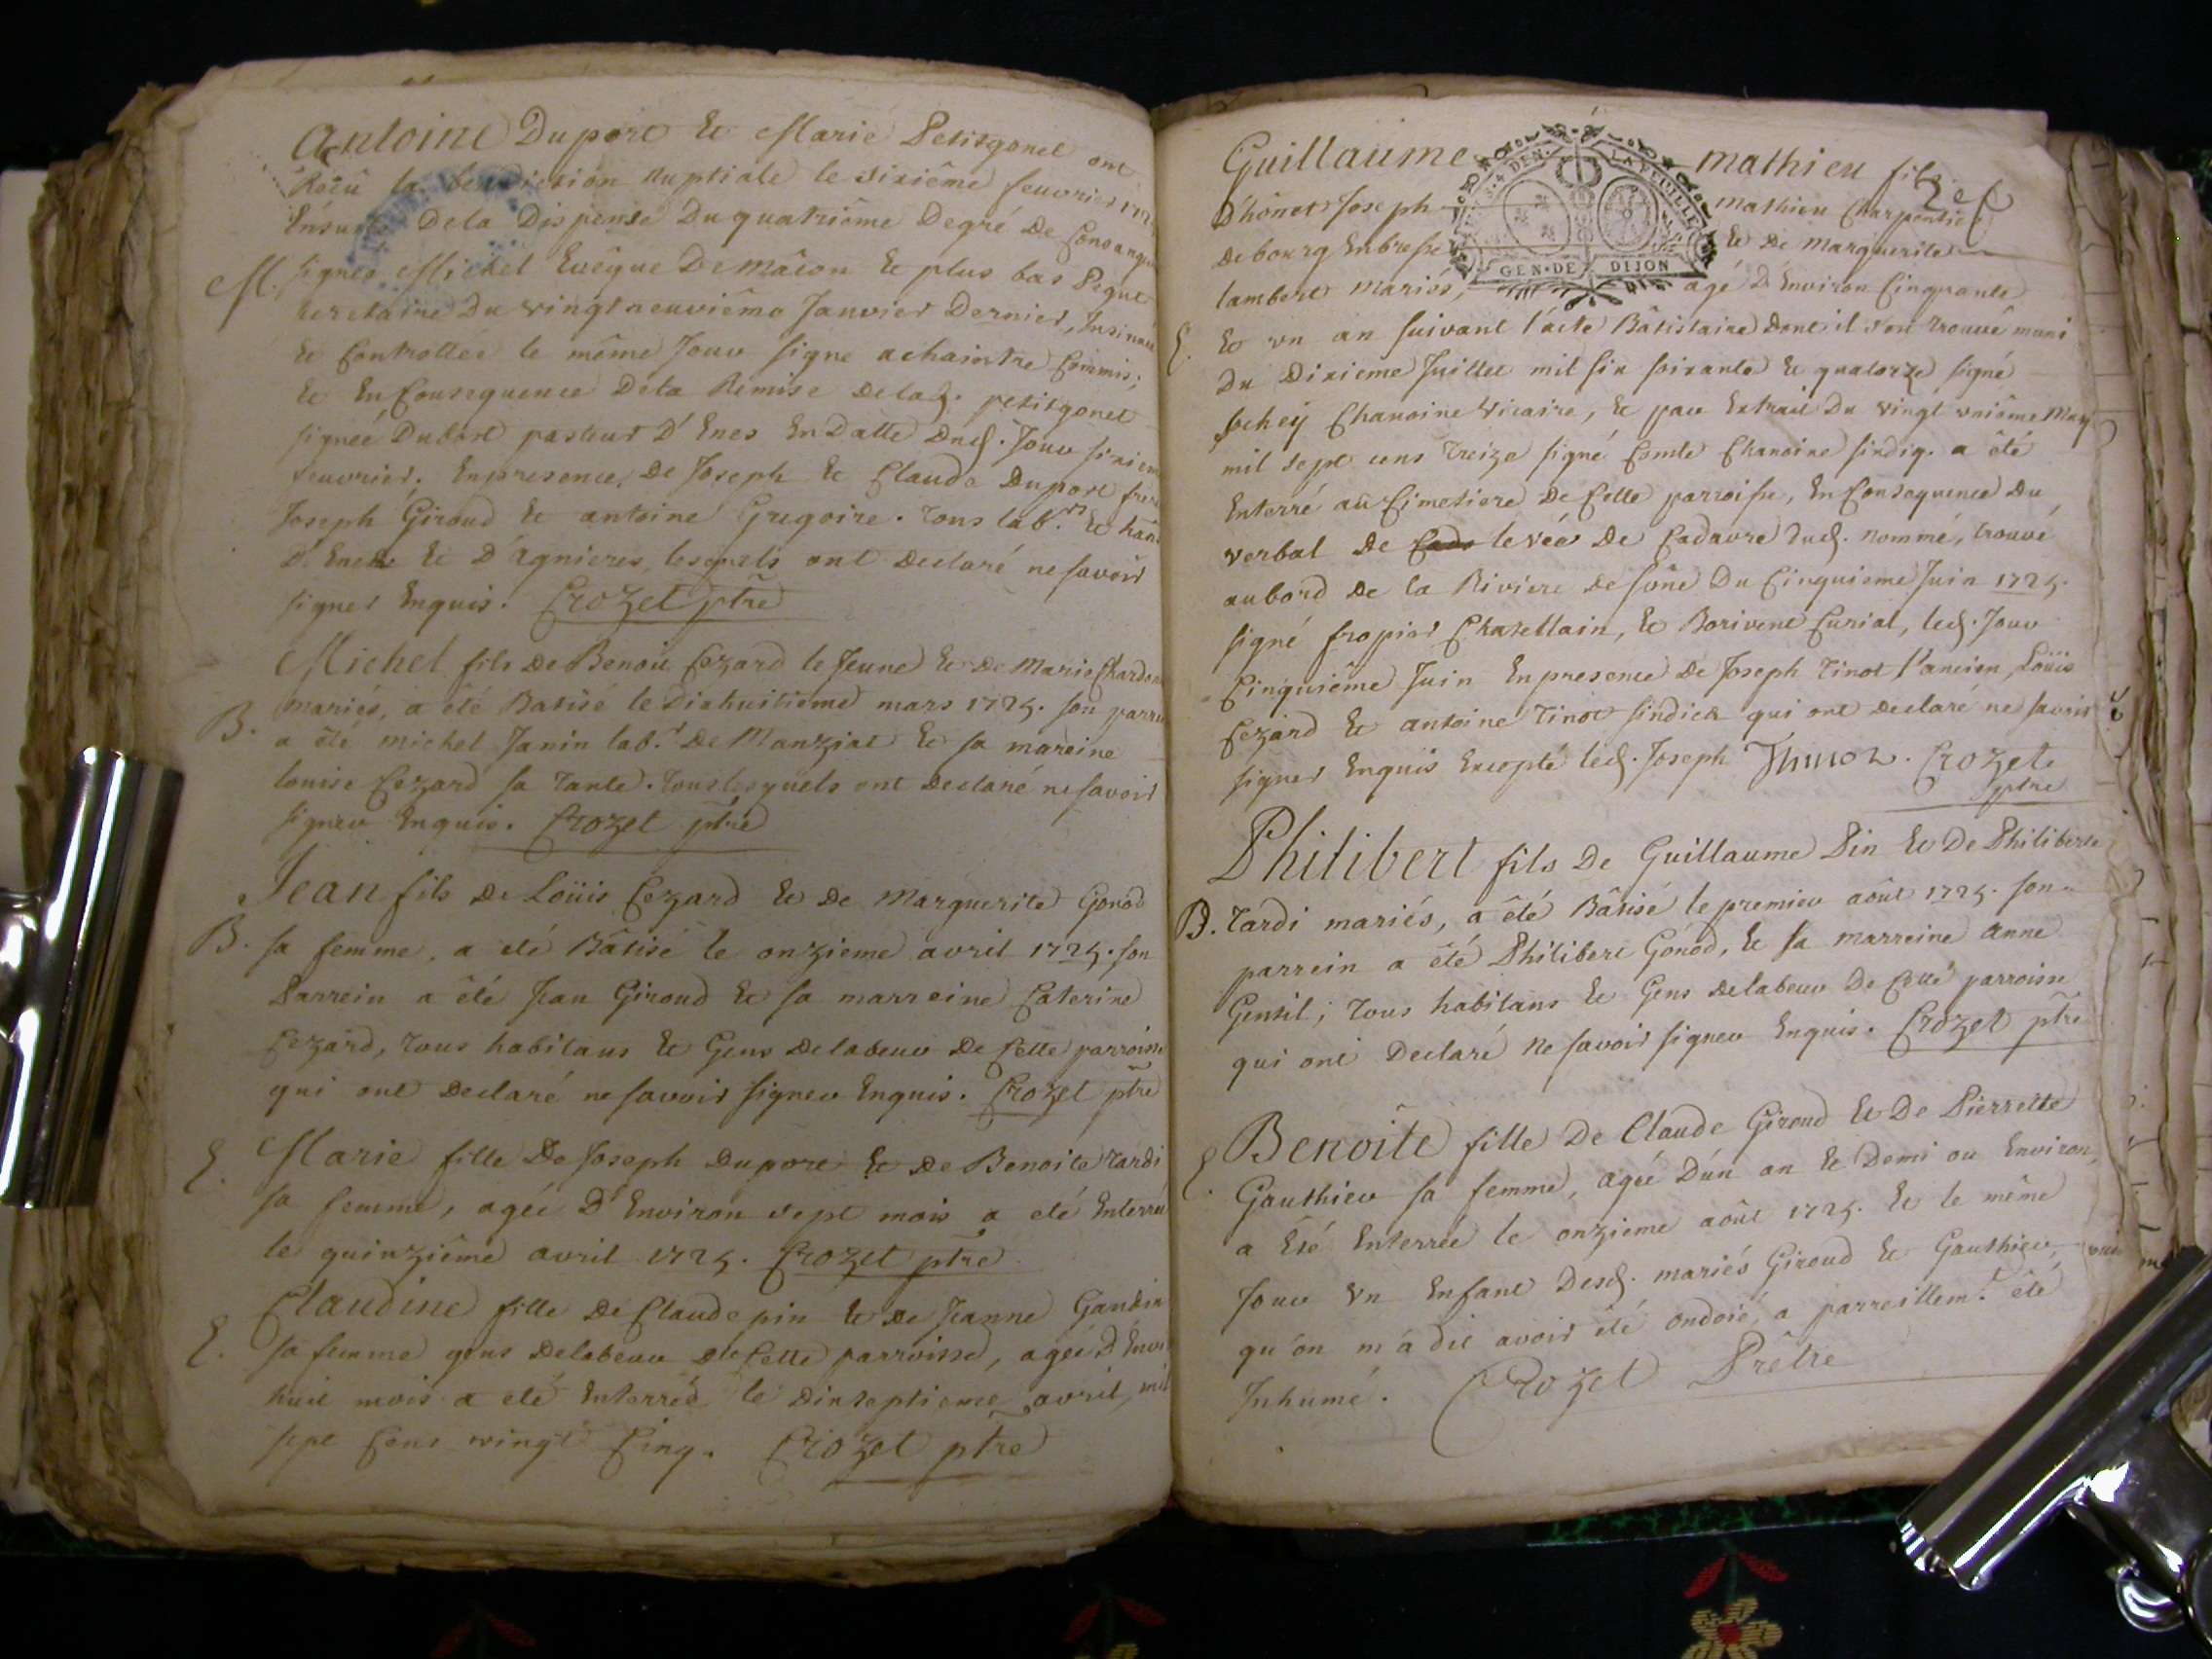 Antoine Duport & Marie Petitgonet ont
Reçû la benediction nuptiale le sixiême feuvrier
Ensuite Dela Dispense Du quatriême Degré De
M. signée Michel Evêque De Mâcon & plus bas
secretaire Du vingt neuviême Janvier Dernier,
& Controllée le même Jour signe achaintre Commis;
& En Consequence Dela Remise Delad. petitgonet
signée Dubost pasteur D'Enes En Datte Dud. Jour
feuvrier. En presence De Joseph & Claude Duport
Joseph Giroud & antoine Gregoire. tous lab.rs &
& D'agnieres, lesquels ont Declaré ne savoir
signer Enquis. Crozet ptre
Michel fils De Benoit Cezard le Jeune & De Marie
mariés, a êté Batisé le Dixhuitiême mars 1725. son
B. a êté michel Janin lab.r De Manziat & sa mareine
louise Cezard sa tante. tous lesquels ont Declaré ne savoir
signer Enquis. Crozet ptre
Jean fils De Loüis Cezard & De Marguerite Gonod
B. sa femme, a eté Bâtisé le onzieme avril 1725. son
Parrein a êté Jean Giroud & sa marreine Caterine
Cezard, tous habitans & Gens Delabeur De Cette parroisse
qui ont Declaré ne savoir signer Enquis. Crozet ptre
E. Marie fille De Joseph Duport & De Benoite tardi
sa femme, agée D'Environ sept mois a eté Enterré
le quinziême avril 1725. Crozet ptre
Claudine fille De Claude pin & De Jeanne
E. sa femme gens Delabeur De Cette parroisse, agée
huit mois a eté Enterrée le Dixseptieme avril, mil
sept Cens vingt Cinq. Crozet ptre
Guillaume mathieu fils
D'hônet Joseph mathieu Charpentier
De bourg En bresse & De Marguerite
lambert mariés, agé D'Environ Cinquante
GEN. DE DIJON
E. & un an suivant l'acte Bâtistaire Dont il s'est trouvé muni
Du Dixieme Juillet mil six soixante & quatorze signé
Chanoine Vicaire, & par Extrait Du vingt uniême May
mil sept cens treize signé Comte Chanoine sindiq. a êté
Enterré au Cimetiere De Cette parroisse, En Consequence Du
verbal De Cada levée De Cadavre Dud. nommé, trouvé
au bord De la Riviere De sône Du Cinquieme Juin 1725.
signé fropier Chatellain, & Borivent Curial, led. Jour
Cinquiême Juin En presence De Joseph tinot l'ancien, Loüis
Cezard & antoine tinot sindics qui ont Declaré ne savoir
signer Enquis Excepté led. Joseph Crozet
ptre
Philibert fils De Guillaume Pin & De Philiberte
B. tardi mariés, a êté Bâtisé le premier août 1725. son
parrein a êté Philibert Gonod, & sa marreine anne
Gentil; tous habitans & Gens Delabeur De Cette parroisse
qui ont Declaré Ne savoir signer Enquis. Crozet ptre
E. Benoîte fille De Claude Giroud & De Pierrette
Gauthier sa femme, agée D'un an & Demi ou Environ,
a êté Enterrée le onzieme août 1725. & le même
Jour Un Enfant Desd. mariés Giroud & Gauthier,
qu'on m'a dit avoir êté ondoié, a parreillem.t êté
Inhumé. Crozet Prêtre